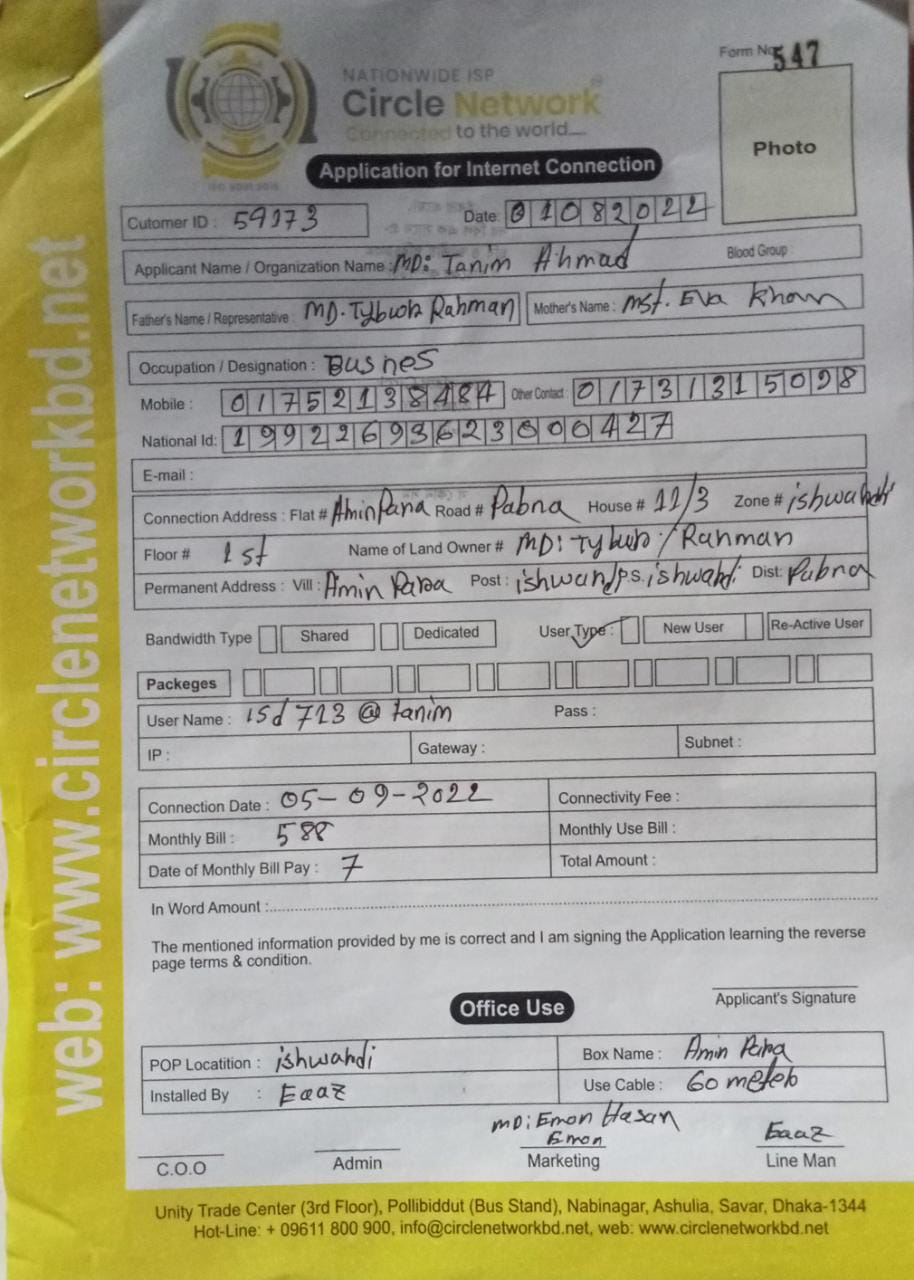 Form No 547
NATIONWIDE ISP
Circle Network
Connected to the world....
Photo
Application for Internet Connection
ISO 9001:2015
Cutomer ID : 59173 Date: 01082022
Applicant Name / Organization Name : MD: Tanim Ahmad Blood Group :
Father's Name / Representative : MD. Tybur Rahman Mother's Name : Mst. Eva Khan
Occupation / Designation : Busnes
Mobile : 01752138484 Other Contact : 01731315098
National Id: 19922693623000427
E-mail :
Connection Address : Flat # Amin Para Road # Pabna House # 11/3 Zone # ishwardi
Floor # 1st Name of Land Owner # MD: Tybur / Rahman
Permanent Address : Vill : Amin Para Post : ishwardi P.S. ishwardi Dist: Pabna
Bandwidth Type Shared Dedicated User Type : New User Re-Active User
Packeges
User Name : isd 713 @ tanim Pass :
IP : Gateway : Subnet :
Connection Date : 05-09-2022 Connectivity Fee :
Monthly Bill : 588 Monthly Use Bill :
Date of Monthly Bill Pay : 7 Total Amount :
In Word Amount :
The mentioned information provided by me is correct and I am signing the Application learning the reverse
page terms & condition.
Applicant's Signature
Office Use
POP Locatition : ishwardi Box Name : Amin Para
Installed By : Eaaz Use Cable : 60 meter
MD: Emon Hasan
Emon Eaaz
C.O.O Admin Marketing Line Man
Unity Trade Center (3rd Floor), Pollibiddut (Bus Stand), Nabinagar, Ashulia, Savar, Dhaka-1344
Hot-Line: + 09611 800 900, info@circlenetworkbd.net, web: www.circlenetworkbd.net
web: www.circlenetworkbd.net